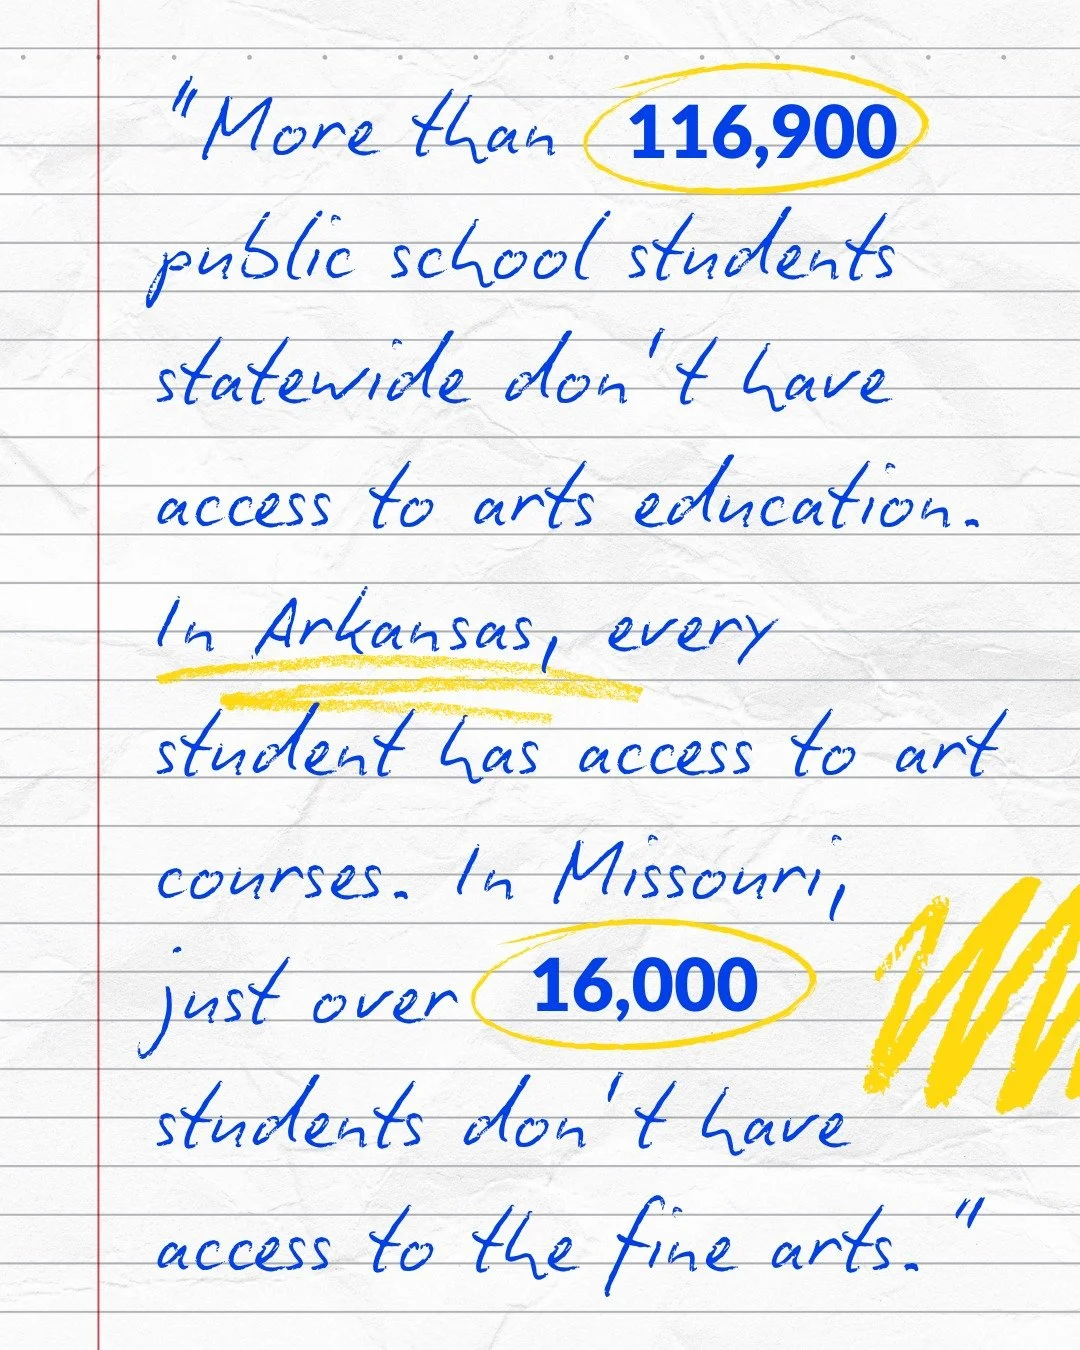 "More than 116,900
public school students
statewide don't have
access to arts education.
In Arkansas, every
student has access to art
courses. In Missouri,
just over 16,000
students don't have
access to the fine arts."